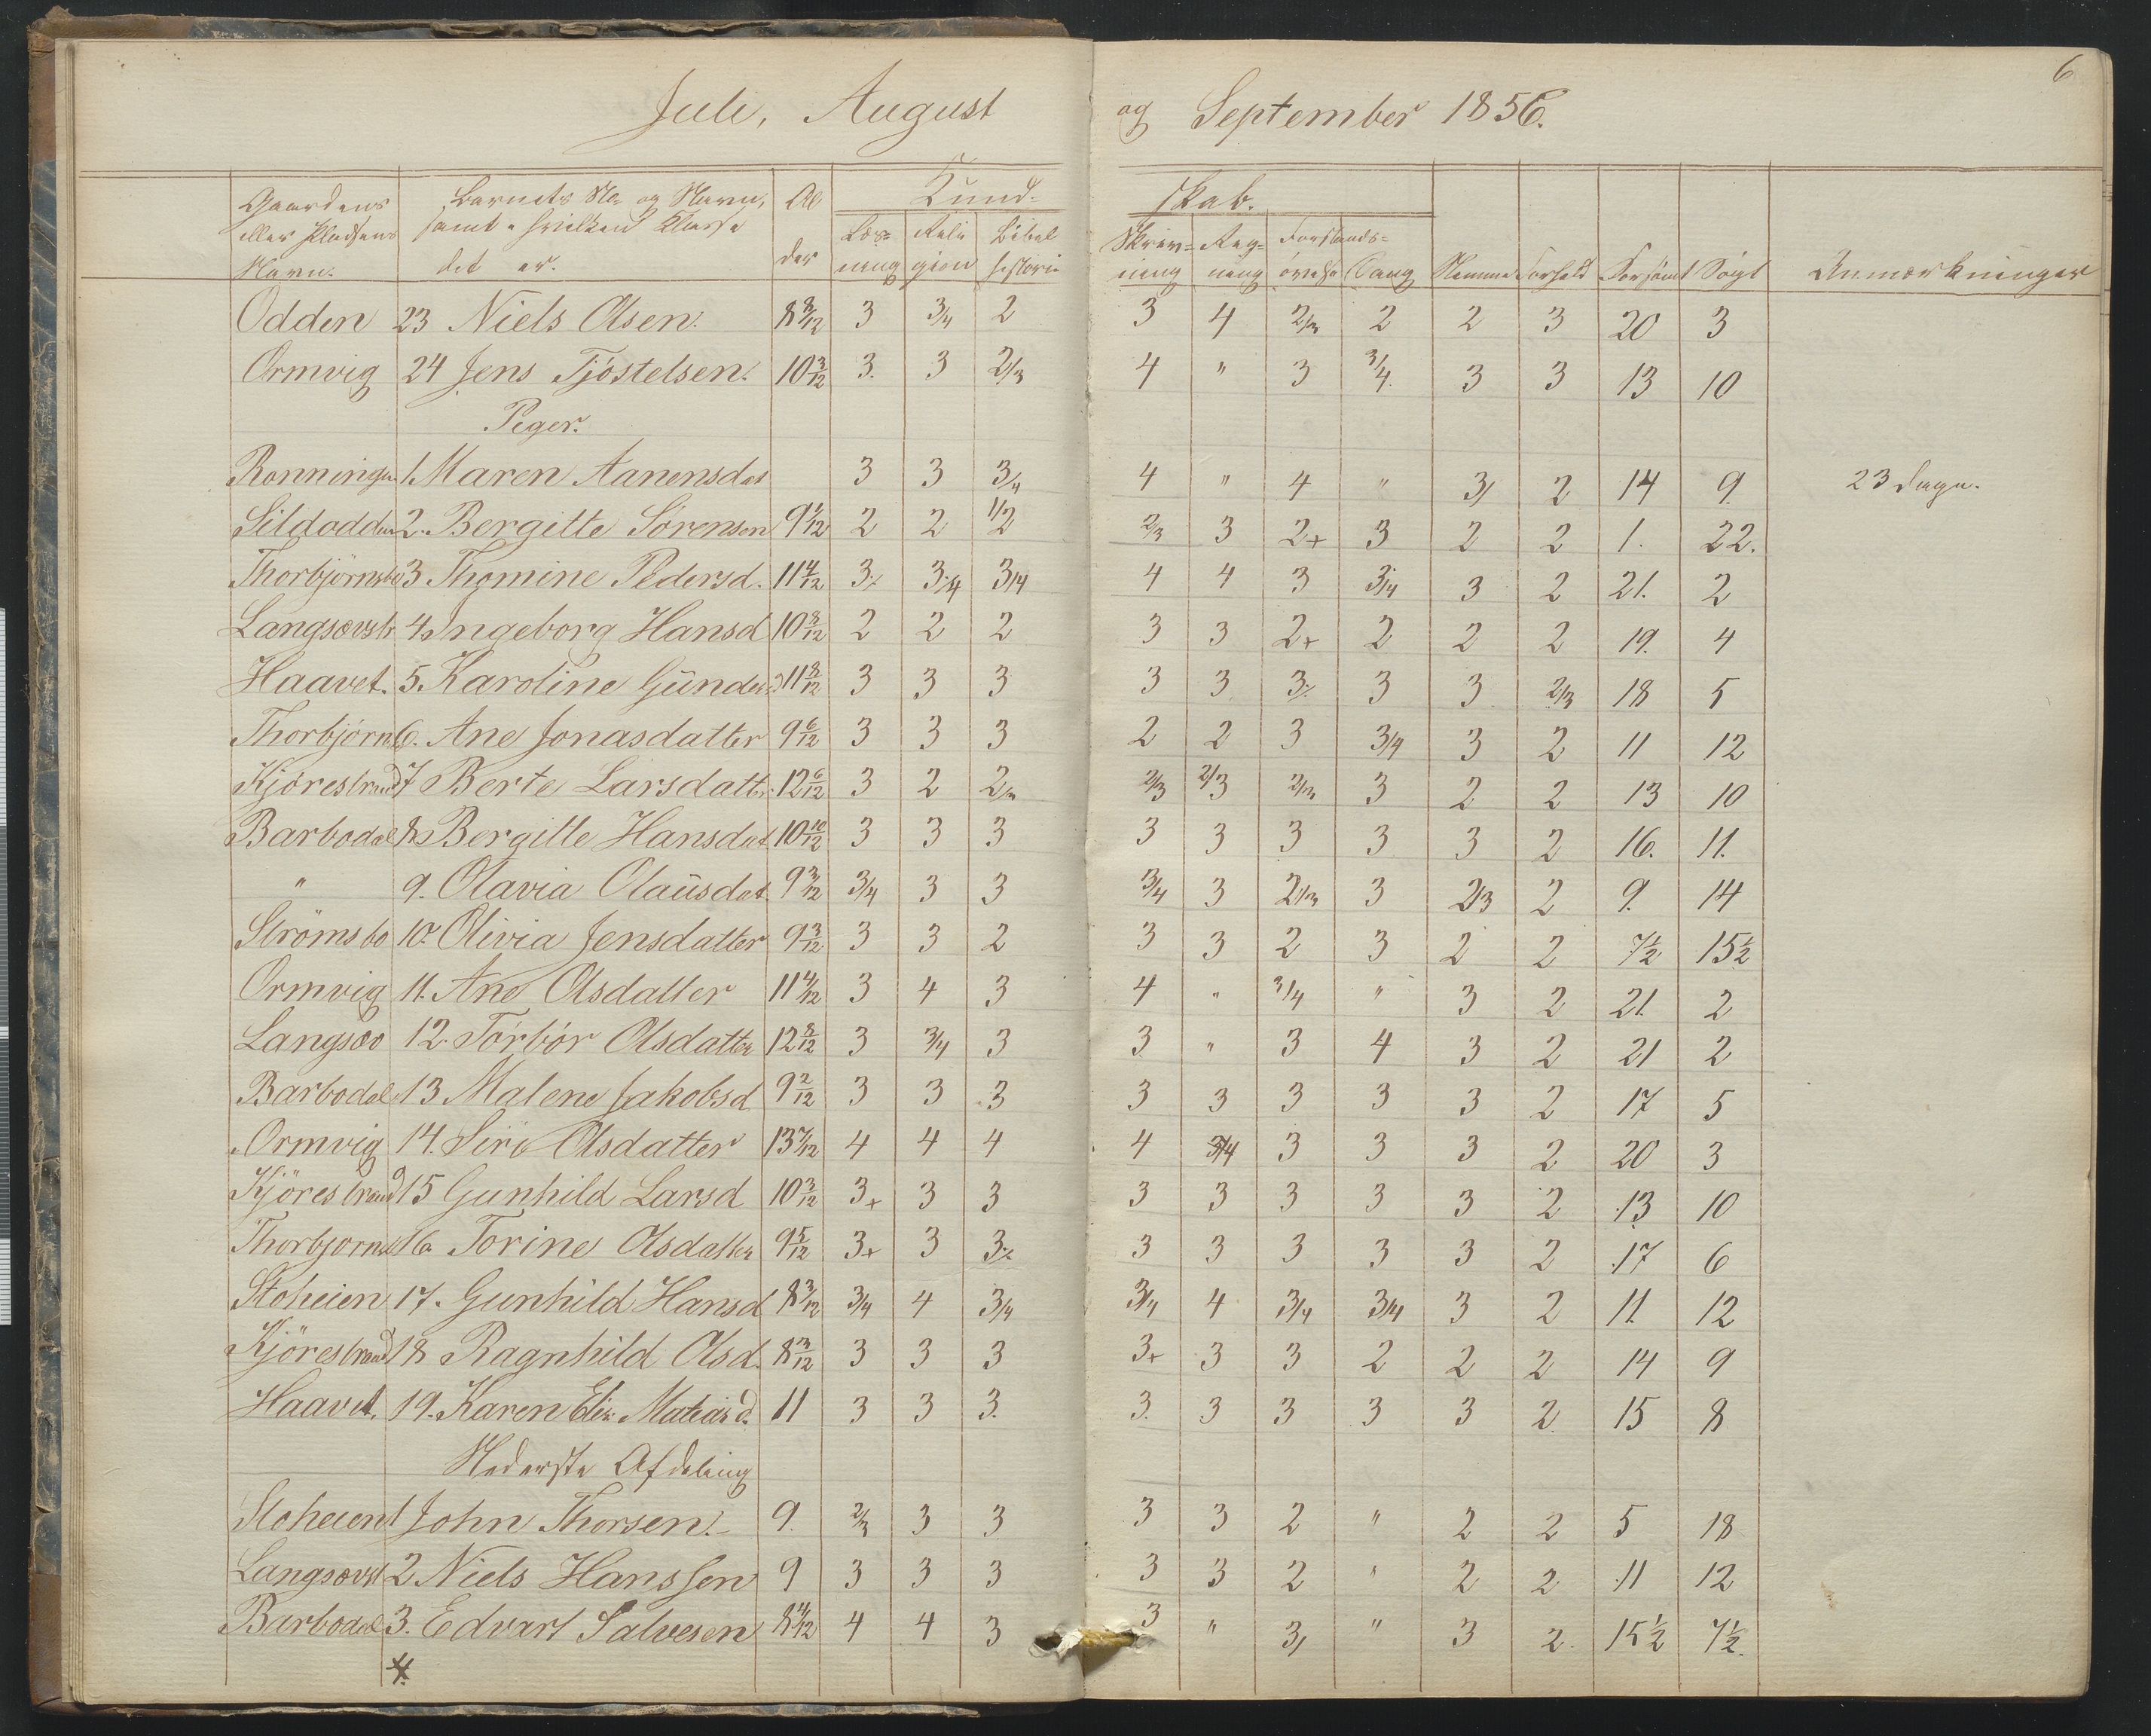 6
Juli, August og September 1856.
Gaardens eller Pladsens Navn. Barnets No og Navn, samt i hvilken Klasse det er. Alder Kundskab. Nemme Forhold Forsömt Sögt Anmærkninger
Læsning Religion Bibelhistorie Skrivning Regning Forstandsövelse Sang
Odden 23 Niels Olsen. 8 8/12 3 3/4 2 3 4 2/3 2 2 3 20 3
Ormvig 24 Jens Tjöstelsen. 10 3/12 3. 3 2/3 4 " 3 3/4. 3 3 13 10
Piger.
Ronningen 1. Maren Aanensdat 3 3 3/4 4 " 4 " 3/ 2 14 9. 23 dage.
Sildodden 2. Bergitte Sörensen 9 1/12 2 2 1/2 2/3 3 2+ 3 2 2 1. 22.
Thorbjörnsbo 3 Thomine Pedersd. 11 4/12 3÷ 3/4 3/4 4 4 3 3/4 3 2 21. 2
Langsævstr 4. Ingeborg Hansd 10 8/12 2 2 2 3 3 2+ 2 2 2 19. 4
Haavet. 5. Karoline Gunders 11 8/12 3 3 3 3 3 3÷ 3 3 2/3 18 5
Thorbjörns 6. Ane Jonasdatter 9 6/12 3 3 3 2 2 3 3/4 3 2 11 12
Kjörestrand 7 Berte Larsdatter 12 6/12 3 2 2/3 2/3 2/3 2/3 3 2 2 13 10
Barbodal 8 Bergitte Hansdat. 10 10/12 3 3 3 3 3 3 3 3 2 16. 11.
" 9. Olavia Olausdat. 9 3/12 3/4 3 3 3/4 3 2/3 3 2/3 2 9. 14
Strömsbo 10. Olivia Jensdatter 9 3/12 3 3 2 3 3 2 3 2 2 7 1/2 15 1/2
Ormvig 11. Ane Olsdatter 11 4/12 3 4 3 4 " 3/4 " 3 2 21. 2
Langsæv 12. Törbör Olsdatter 12 8/12 3 3/4 3 3 " 3 4 3 2 21 2
Barbodal 13 Malene Jakobsd 9 2/12 3 3 3 3 3 3 3 3 2 17 5
Ormvig 14. Siri Olsdatter 13 7/12 4 4 4 4 3/4 3 3 3 2 20 3
Kjörestrand 15 Gunhild Larsd 10 3/12 3+ 3 3 3 3 3 3 3 2 13 10
Thorbjorns 16. Torine Olsdatter 9 5/12 3+ 3 3÷ 3 3 3 3 3 2 17 6
Stoheien 17. Gunhild Hansd 8 3/12 3/4 4 3/4 3/4 4 3/4 3/4 3 2 11. 12
Kjörestrand 18 Ragnhild Olsd. 8 3/12 3 3 3 3+ 3 3 2 2 2 14 9
Haavet, 19. Karen Elis. Matiasd. 11 3 3 3. 3. 3 3 3 3 2. 15 8
Nederste Afdeling
Stoheien 1 John Thorsen. 9. 2/3 3 3 3 3 2 " 2 2 5 18
Langsævst 2 Niels Hanssen 9 3 3 3 3 3 2 " 2 2 11 12
Barbodal 3. Edvart Salvesen 8 4/12 4 4 3 3 " 3/ " 3 2. 15 1/2 7 1/2.
4.